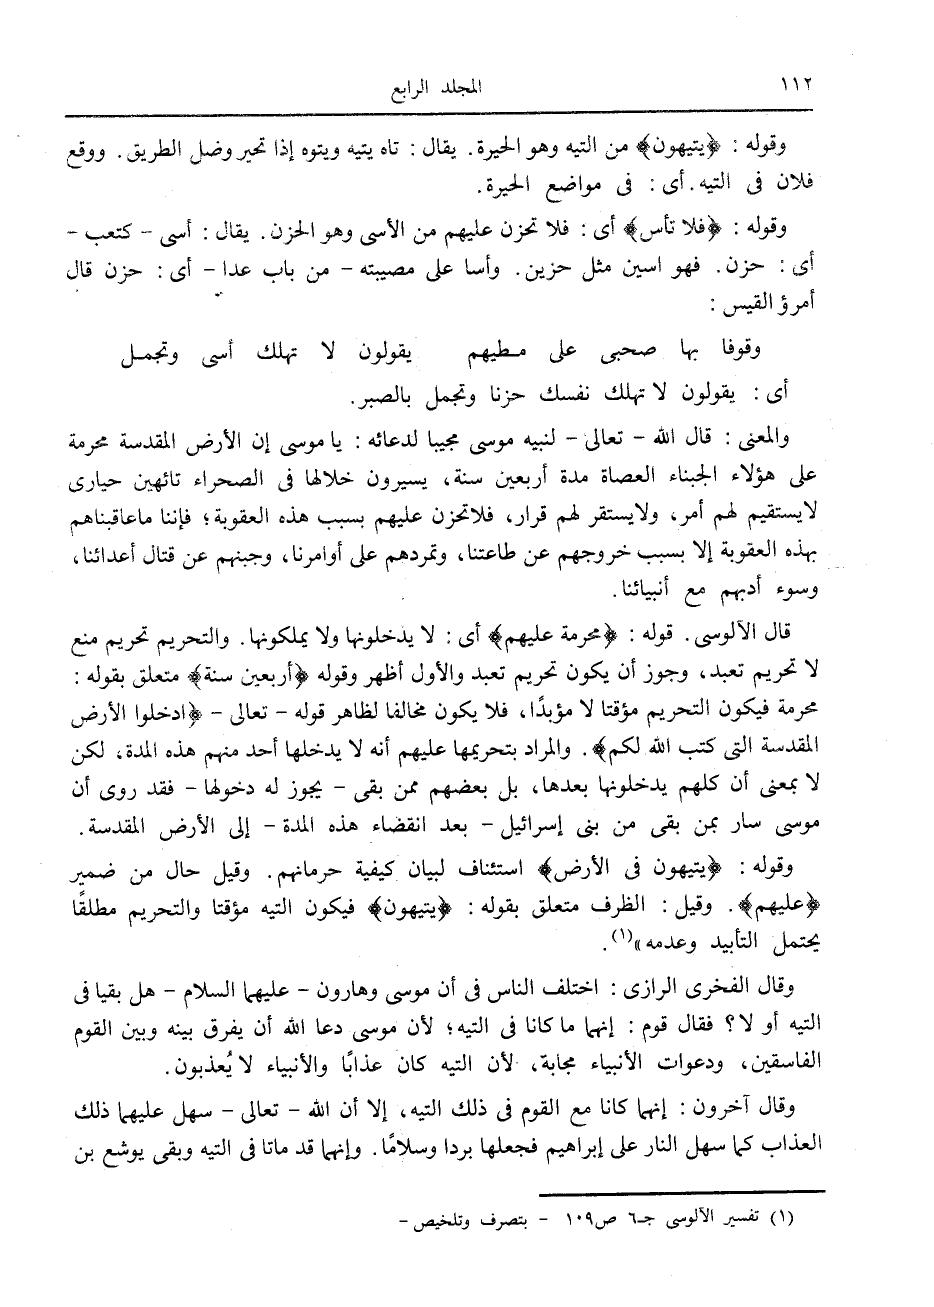 ١١٢
المجلد الرابع
وقوله : ﴿يتيهون﴾ من التيه وهو الحيرة. يقال : تاه يتيه ويتوه إذا تحير وضل الطريق. ووقع
فلان فى التيه. أى : فى مواضع الحيرة.
وقوله : ﴿فلا تأس﴾ أى : فلا تحزن عليهم من الأسى وهو الحزن. يقال : أسى – كتعب –
أى : حزن. فهو اسين مثل حزين. وأسا على مصيبته – من باب عدا – أى : حزن قال
أمرؤ القيس :
وقوفا بها صحبى على مطيهم يقولون لا تهلك أسى وتجمل
أى : يقولون لا تهلك نفسك حزنا وتجمل بالصبر.
والمعنى : قال الله – تعالى – لنبيه موسى مجيبا لدعائه : يا موسى إن الأرض المقدسة محرمة
على هؤلاء الجبناء العصاة مدة أربعين سنة، يسيرون خلالها فى الصحراء تائهين حيارى
لايستقيم لهم أمر، ولايستقر لهم قرار، فلاتحزن عليهم بسبب هذه العقوبة؛ فإننا ماعاقبناهم
بهذه العقوبة إلا بسبب خروجهم عن طاعتنا، وتمردهم على أوامرنا، وجبنهم عن قتال أعدائنا،
وسوء أدبهم مع أنبيائنا.
قال الآلوسى. قوله : ﴿محرمة عليهم﴾ أى : لا يدخلونها ولا يملكونها. والتحريم تحريم منع
لا تحريم تعبد، وجوز أن يكون تحريم تعبد والأول أظهر وقوله ﴿أربعين سنة﴾ متعلق بقوله :
محرمة فيكون التحريم مؤقتا لا مؤبدًا، فلا يكون مخالفا لظاهر قوله – تعالى – ﴿ادخلوا الأرض
المقدسة التى كتب الله لكم﴾. والمراد بتحريمها عليهم أنه لا يدخلها أحد منهم هذه المدة، لكن
لا بمعنى أن كلهم يدخلونها بعدها، بل بعضهم ممن بقى – يجوز له دخولها – فقد روى أن
موسى سار بمن بقى من بنى إسرائيل – بعد انقضاء هذه المدة – إلى الأرض المقدسة.
وقوله : ﴿يتيهون فى الأرض﴾ استئناف لبيان كيفية حرمانهم. وقيل حال من ضمير
﴿عليهم﴾. وقيل : الظرف متعلق بقوله : ﴿يتيهون﴾ فيكون التيه مؤقتا والتحريم مطلقًا
يحتمل التأبيد وعدمه»(١).
وقال الفخرى الرازى : اختلف الناس فى أن موسى وهارون – عليهما السلام – هل بقيا فى
التيه أو لا؟ فقال قوم : إنهما ما كانا فى التيه؛ لأن موسى دعا الله أن يفرق بينه وبين القوم
الفاسقين، ودعوات الأنبياء مجابة، لأن التيه كان عذابًا والأنبياء لا يُعذبون.
وقال آخرون : إنهما كانا مع القوم فى ذلك التيه، إلا أن الله – تعالى – سهل عليهما ذلك
العذاب كما سهل النار على إبراهيم فجعلها بردا وسلامًا. وإنهما قد ماتا فى التيه وبقى يوشع بن
(١) تفسير الآلوسى جـ٦ ص١٠٩ – بتصرف وتلخيص –